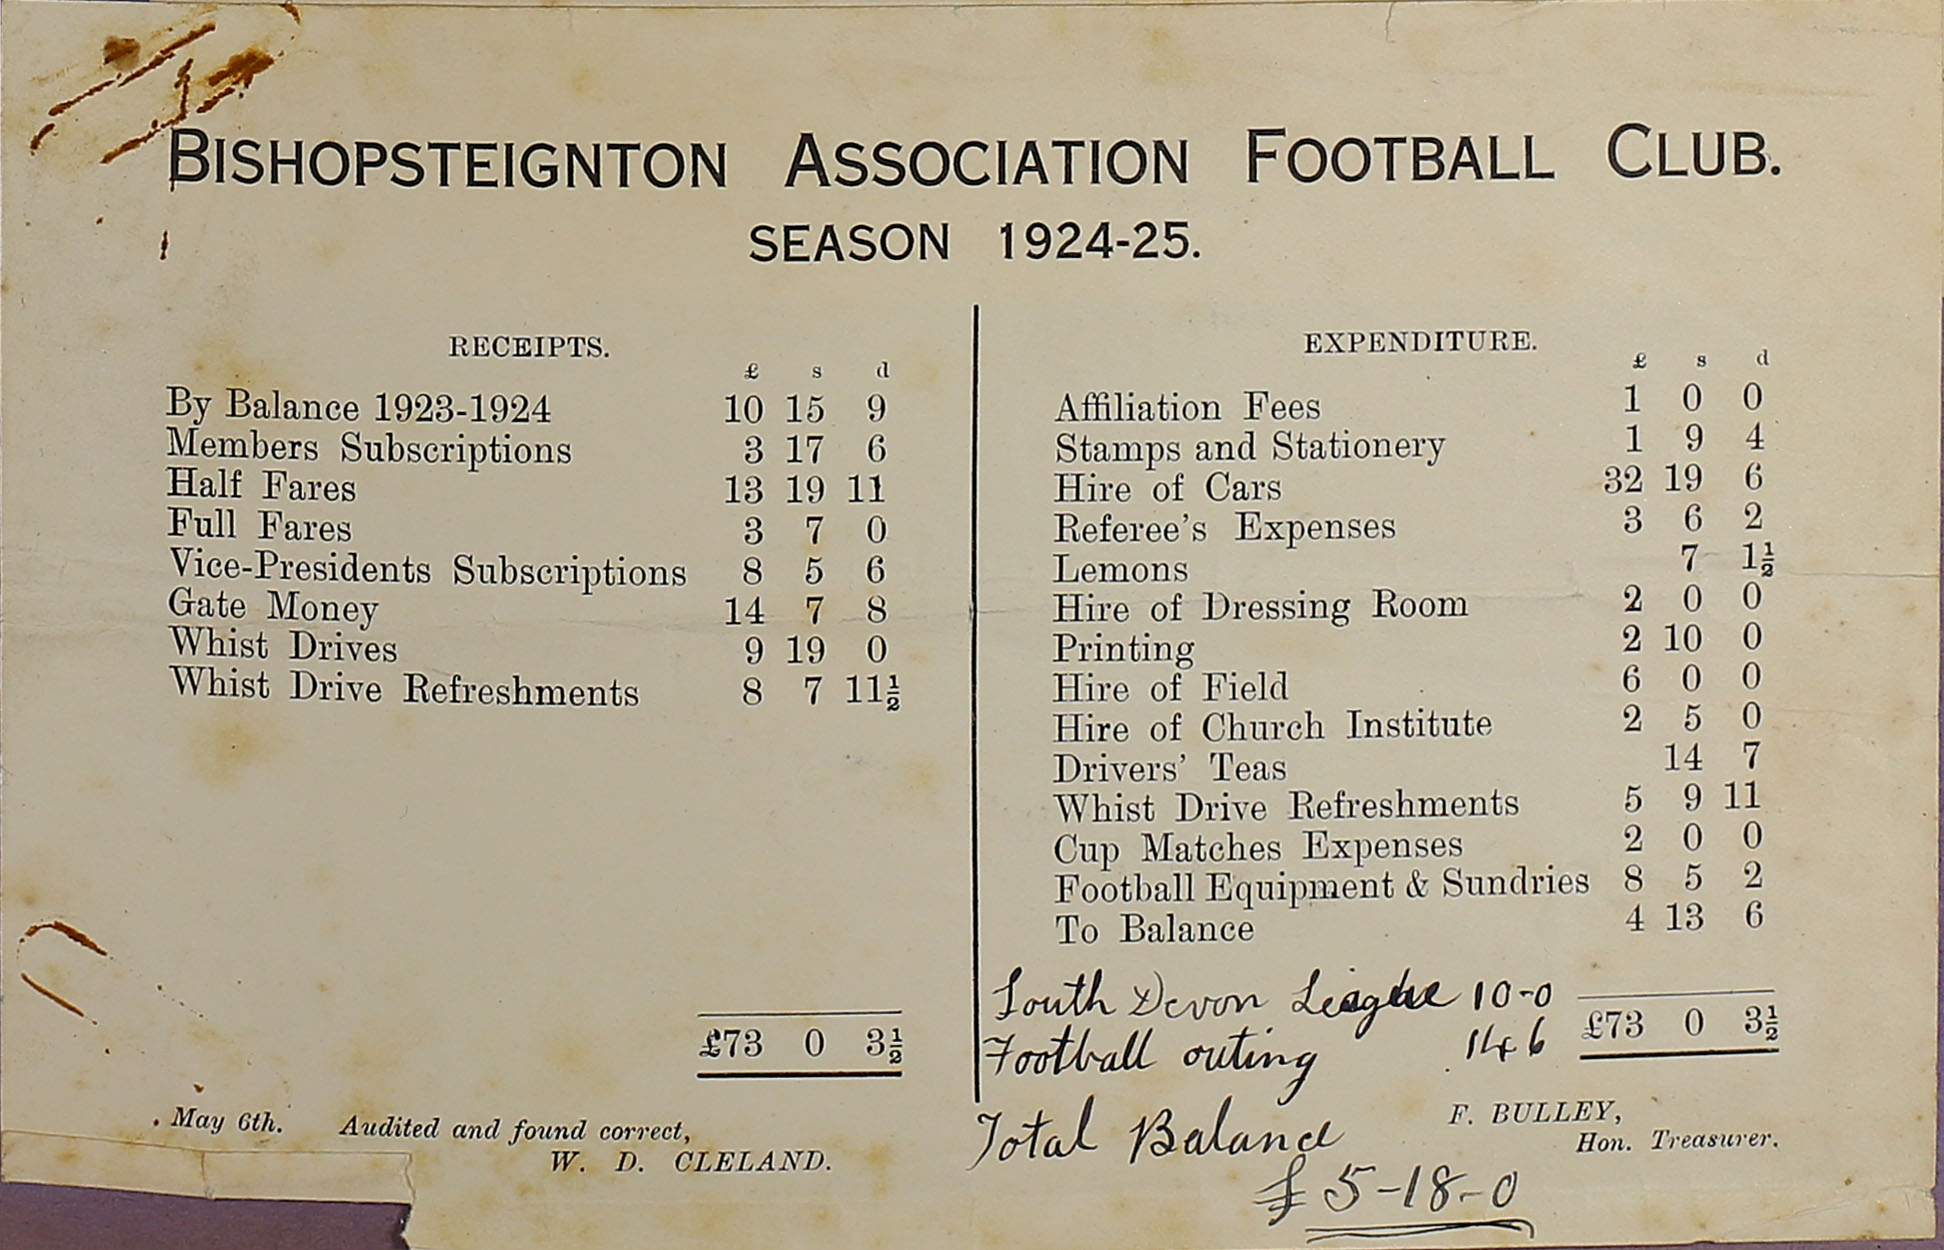 BISHOPSTEIGNTON ASSOCIATION FOOTBALL CLUB.
SEASON 1924-25.
RECEIPTS.
£ s d
By Balance 1923-1924 10 15 9
Members Subscriptions 3 17 6
Half Fares 13 19 11
Full Fares 3 7 0
Vice-Presidents Subscriptions 8 5 6
Gate Money 14 7 8
Whist Drives 9 19 0
Whist Drive Refreshments 8 7 11½
£73 0 3½
May 6th. Audited and found correct,
W. D. CLELAND.
EXPENDITURE.
£ s d
Affiliation Fees 1 0 0
Stamps and Stationery 1 9 4
Hire of Cars 32 19 6
Referee's Expenses 3 6 2
Lemons 7 1½
Hire of Dressing Room 2 0 0
Printing 2 10 0
Hire of Field 6 0 0
Hire of Church Institute 2 5 0
Drivers' Teas 14 7
Whist Drive Refreshments 5 9 11
Cup Matches Expenses 2 0 0
Football Equipment & Sundries 8 5 2
To Balance 4 13 6
£73 0 3½
South Devon League 10-0
Football outing 14 6
Total Balance
£5-18-0
F. BULLEY,
Hon. Treasurer.